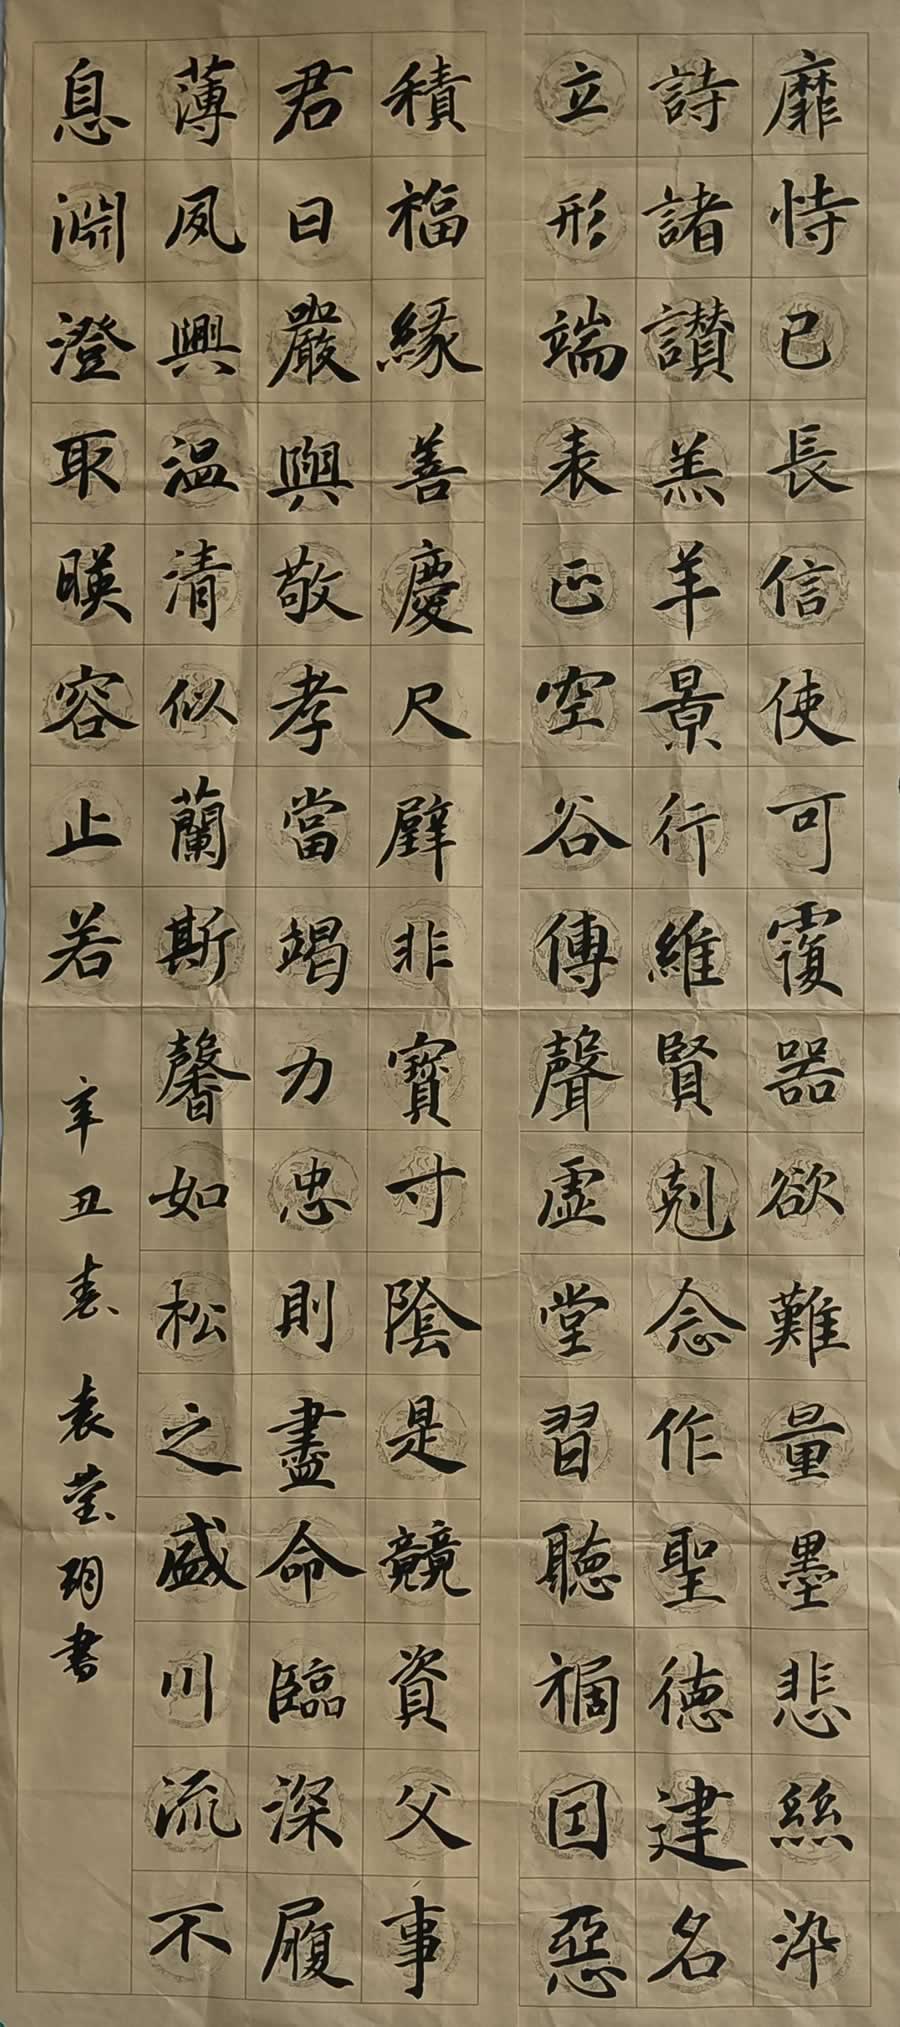 靡恃己長信使可覆器欲難量墨悲絲染
詩諸讃羔羊景行維賢剋念作聖德建名
立形端表正空谷傳聲虛堂習聽禍因惡
積福緣善慶尺璧非寶寸陰是競資父事
君曰嚴與敬孝當竭力忠則盡命臨深履
薄夙興温清似蘭斯馨如松之盛川流不
息淵澄取暎容止若
辛丑春 袁莹玥書